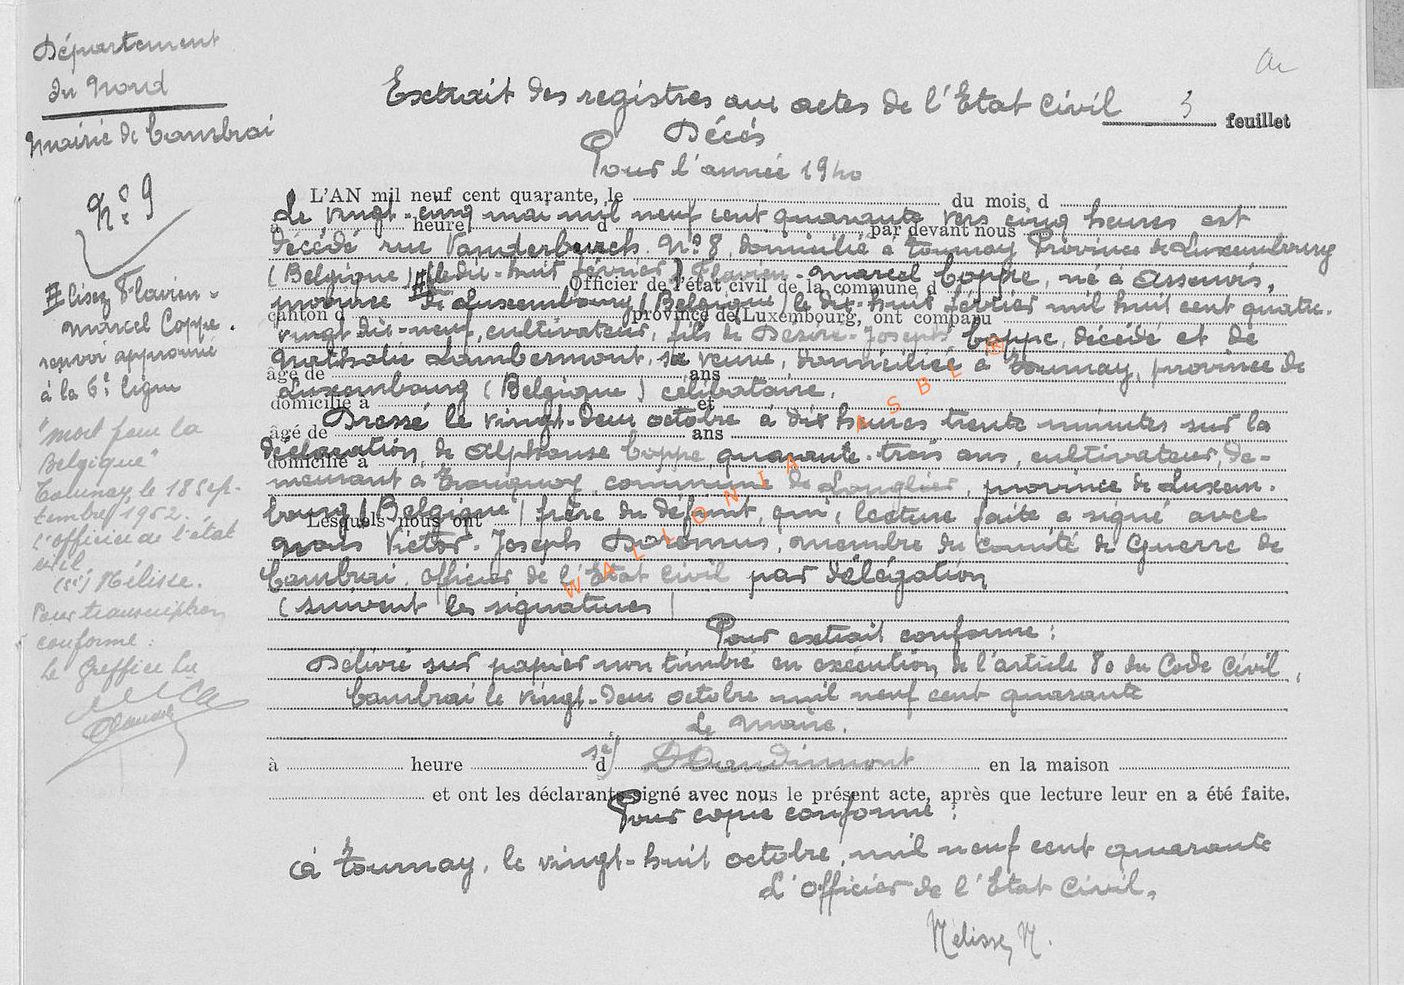 Département
du Nord
Mairie de Cambrai
N° 9
Extrait des registres aux actes de l'Etat Civil
3 feuillet
Décés
Pour l'année 1940
L'AN mil neuf cent quarante, le du mois d
Le vingt-cinq mai mil neuf cent quarante vers cinq heures est
à heure d par devant nous
décédé rue Vanderburch N° 8, domicilié à Tournay Province de Luxembourg
(Belgique) (le dix-huit février) Flavien-Marcel Coppe, né à Assenois,
Officier de l'état civil de la commune d
province de Luxembourg (Belgique) le dix-huit février mil huit cent quatre-
canton d province de Luxembourg, ont comparu
vingt dix-neuf, cultivateur, fils de Désiré-Joseph Coppe, décédé et de
Nathalie Lambermont, sa veuve, domiciliée à Tournay, province de
âgé de ans
Luxembourg (Belgique) célibataire.
domicilié à et
Dressé le vingt-deux octobre à dix heures trente minutes sur la
âgé de ans
déclaration de Alphonse Coppe quarante-trois ans, cultivateur, de-
domicilié à
meurant à Tronquoy, commune de Longlier, province de Luxem-
bourg (Belgique) frère du défunt, qui, lecture faite a signé avec
Lesquels nous ont
nous Victor-Joseph Doremus, membre du Comité de Guerre de
Cambrai, Officier de l'Etat Civil par délégation
(suivent les signatures)
Pour extrait conforme :
Délivré sur papier non timbré en exécution de l'article 80 du Code Civil,
Cambrai le vingt-deux octobre mil neuf cent quarante
Le Maire.
à heure d en la maison
et ont les déclarants signé avec nous le présent acte, après que lecture leur en a été faite.
Pour copie conforme :
à Tournay, le vingt-huit octobre, mil neuf cent quarante
L'Officier de l'Etat Civil,
Mélisse, N.
lisez Flavien-
Marcel Coppe.
renvoi approuvé
à la 6e ligne
"Mort pour la
Belgique"
Tournay, le 18 Sep-
tembre 1952.
L'officier de l'état
civil
(sé) Mélisse.
Pour transcription
conforme :
Le Greffier
WALLONIA ASBL ©